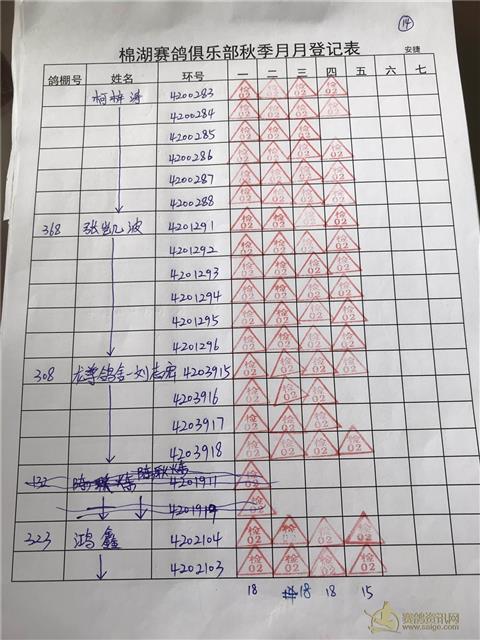 14
棉湖赛鸽俱乐部秋季月月登记表
安捷
鸽棚号 姓名 环号 一 二 三 四 五 六 七
4200283 检02 检02 检02 检02
4200284 检02 检02 检02 检02
4200285 检02 检02 检02
4200286 检02 检02 检02 检02
4200287 检02 检02 检02 检02
4200288 检02 检02 检02 检02
368 张凯波 4201291 检02 检02 检02 检02
4201292 检02 检02 检02 检02
4201293 检02 检02 检02 检02
4201294 检02 检02 检02 检02
4201295 检02 检02 检02 检02
4201296 检02 检02 检02 检02
308 龙尊鸽舍-刘志宏 4203915 检02 检02 检02 检02
4203916 检02 检02 检02
4203917 检02 检02 检02
4203918 检02 检02 检02 检02
132 4201911 检02
4201919 检02
323 鸿鑫 4202104 检02 检02 检02 检02
4202103 检02 检02 检02 检02
18 18 18 15
赛鸽资讯网
www.saige.com